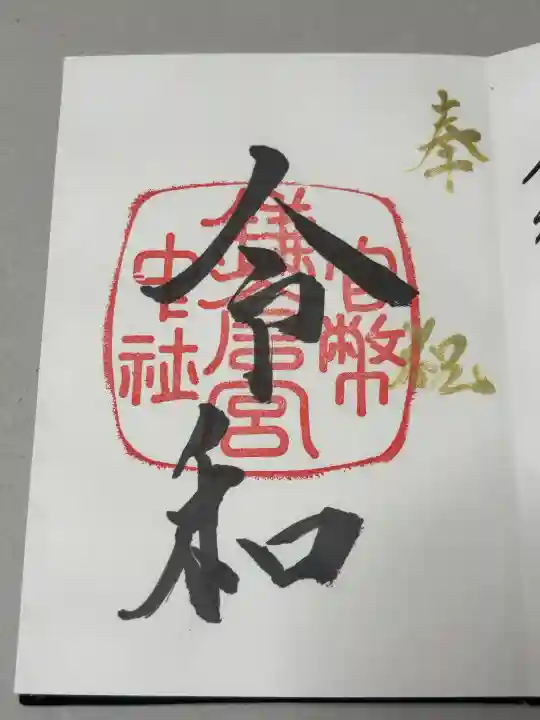 奉祝
令和
官幣
鎌倉宮
中社